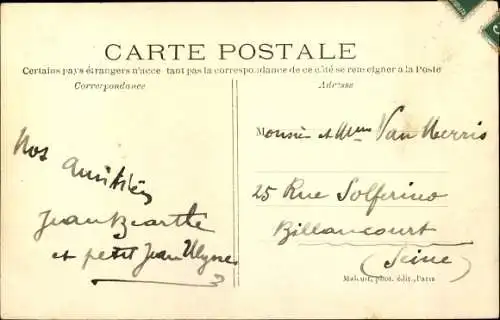 CARTE POSTALE
Certains pays étrangers n'acceptant pas la correspondance de ce côté se renseigner à la Poste
Correspondance
Adresse
Nos
amitiés
Jean
et petit Jean Ulysse
Monsieur et Mme Van
25 Rue Solferino
Billancourt
(Seine)
phot. édit., Paris